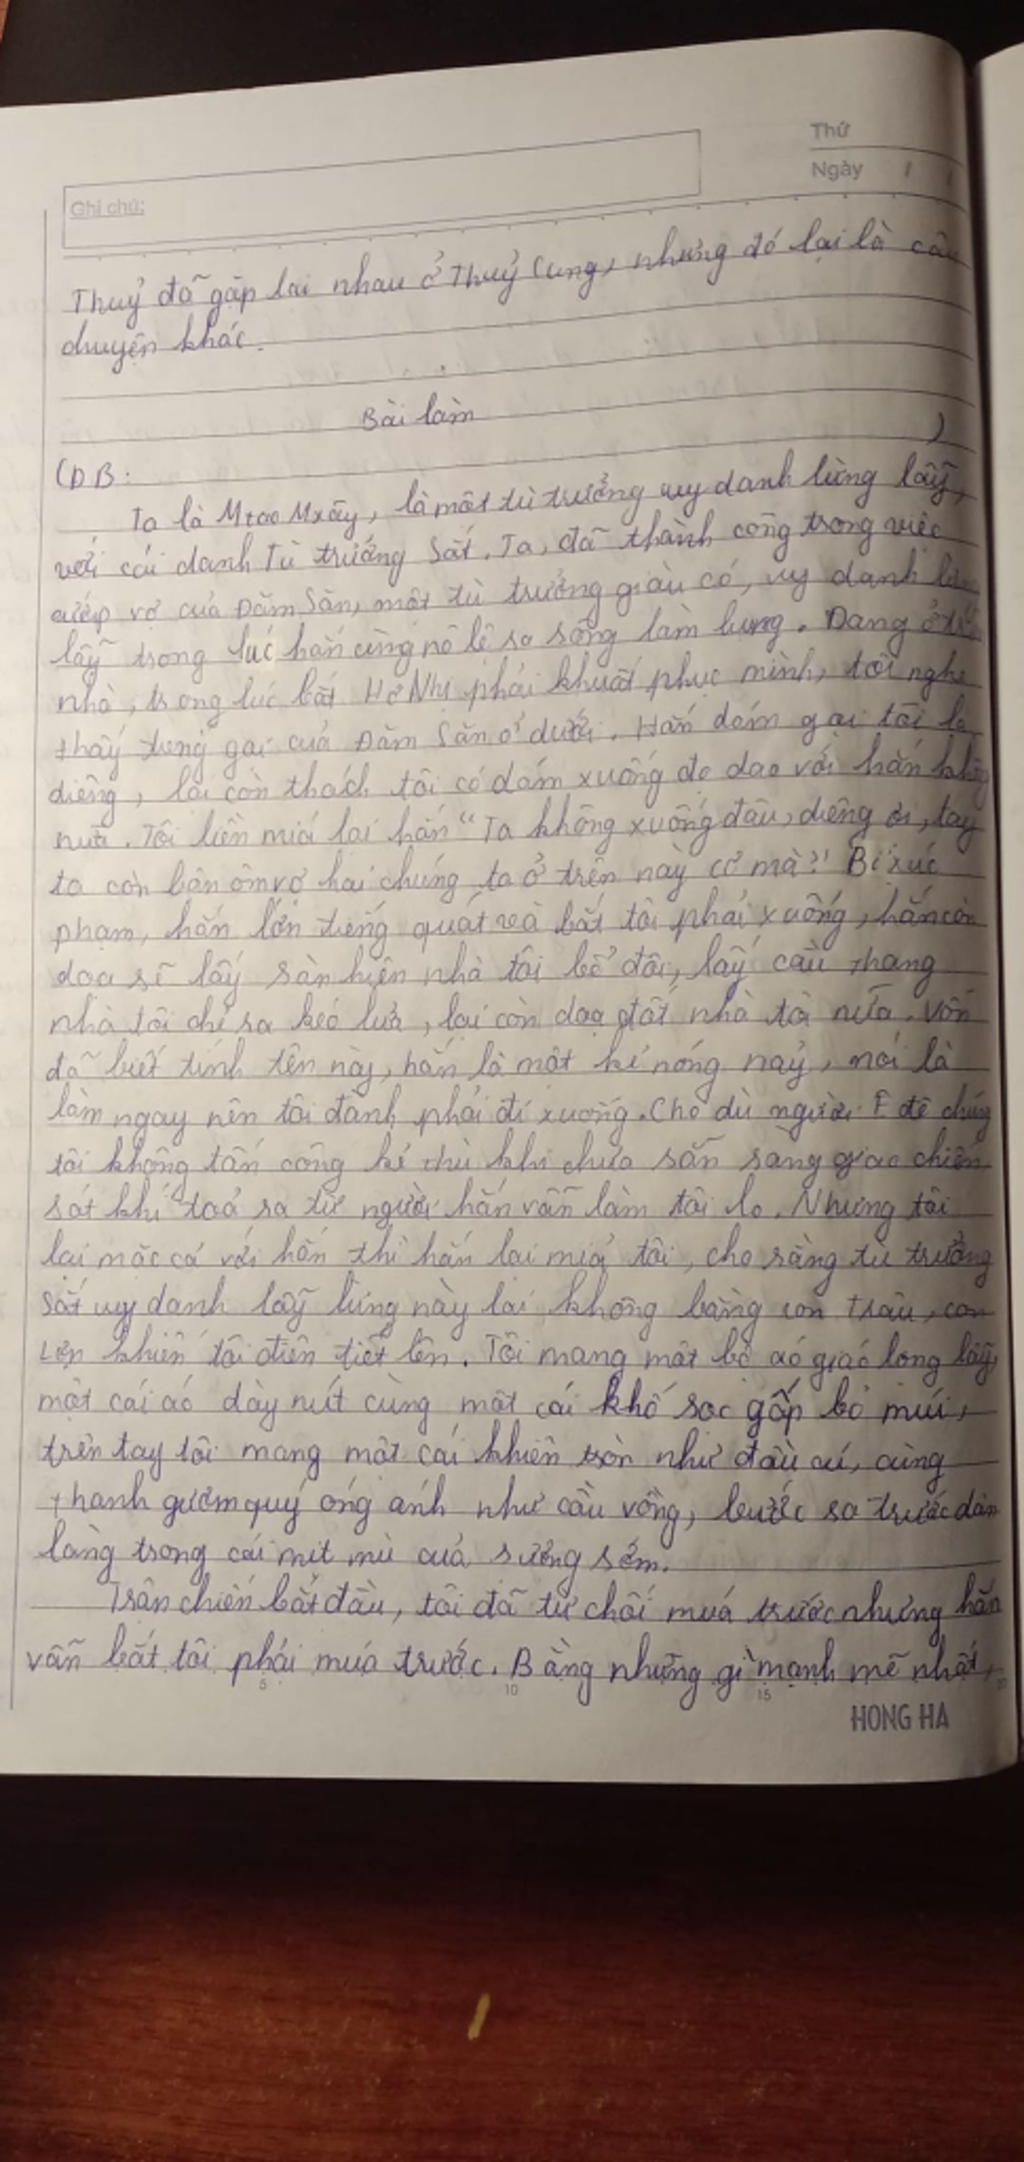 Thứ
Ngày / /
Ghi chú:
Thuỷ đã gặp lại nhau ở Thuỷ Cung, nhưng đó lại là câu
chuyện khác.
Bài làm
(ĐB: )
Ta là Mtao Mxây, là một tù trưởng uy danh lừng lẫy,
với cái danh Tù trưởng Sắt. Ta, đã thành công trong việc
cướp vợ của Đăm Săn, một tù trưởng giàu có, uy danh lừng
lẫy trong lúc hắn cùng nô lệ ra sông làm lụng. Đang ở trên
nhà, trong lúc bắt Hơ Nhị phải khuất phục mình, tôi nghe
thấy tiếng gọi của Đăm Săn ở dưới. Hắn dám gọi tôi là
diêng, lại còn thách tôi có dám xuống đọ dao với hắn không
nữa. Tôi liền mỉa lại hắn "Ta không xuống đâu, diêng ơi, tay
ta còn bận ôm vợ hai chúng ta ở trên này cơ mà?" Bị xúc
phạm, hắn lớn tiếng quát và bắt tôi phải xuống, hắn còn
doạ sẽ lấy sàn hiên nhà tôi bổ đôi, lấy cầu thang
nhà tôi chẻ ra kéo lửa, lại còn doạ đốt nhà tôi nữa. Vốn
đã biết tính tên này, hắn là một kẻ nóng nảy, nói là
làm ngay nên tôi đành phải đi xuống. Cho dù người Ê đê chúng
tôi không tấn công kẻ thù khi chưa sẵn sàng giao chiến
sát khí toả ra từ người hắn vẫn làm tôi lo. Nhưng tôi
lại mặc cả với hắn thì hắn lại mỉa tôi, cho rằng tù trưởng
Sắt uy danh lẫy lừng này lại không bằng con trâu, con
Lợn khiến tôi điên tiết lên. Tôi mang một bộ áo giáo long lẫy,
một cái áo dày nút cùng một cái khố sọc gấp bỏ múi,
trên tay tôi mang một cái khiên tròn như đầu cú, cùng
thanh gươm quý óng ánh như cầu vồng, bước ra trước dân
làng trong cái mịt mù của sương sớm.
Trận chiến bắt đầu, tôi đã từ chối múa trước nhưng hắn
vẫn bắt tôi phải múa trước. Bằng những gì mạnh mẽ nhất,
5 10 15
HONG HA